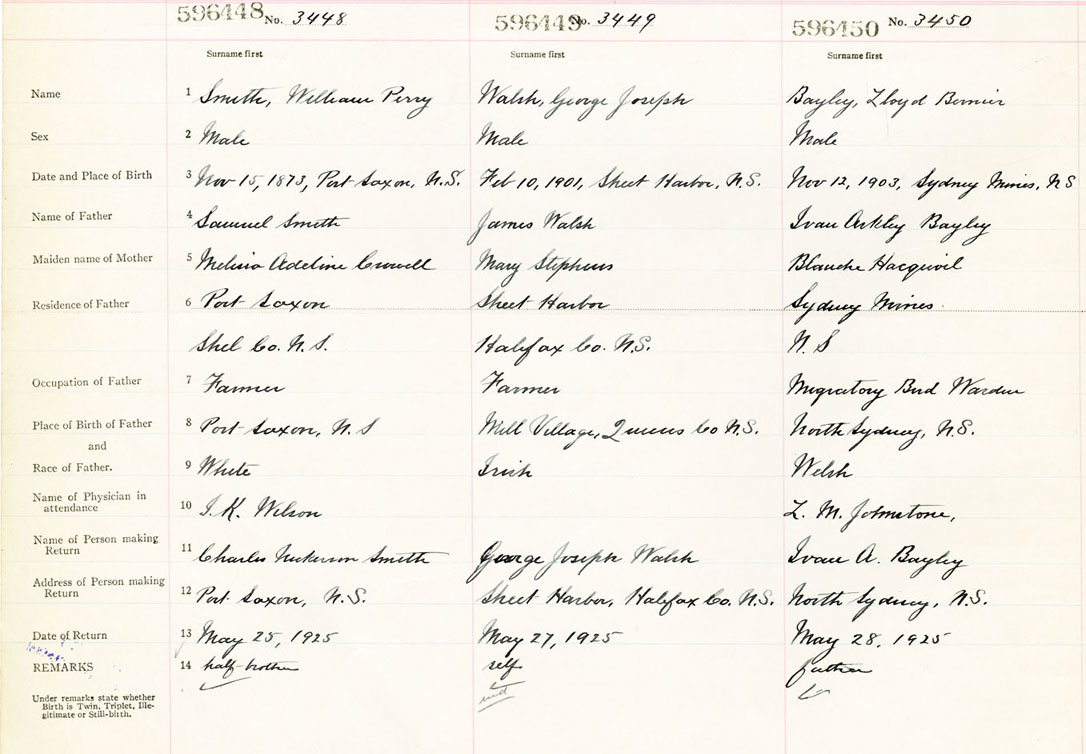 596448 No. 3448 596449 No. 3449 596450 No. 3450
Surname first Surname first Surname first
Name 1 Smith, William Perry Walsh, George Joseph Bayley, Lloyd Bernier
Sex 2 Male Male Male
Date and Place of Birth 3 Nov 15, 1873, Port Saxon, N.S. Feb 10, 1901, Sheet Harbor, N.S. Nov 12, 1903, Sydney Mines, N S
Name of Father 4 Samuel Smith James Walsh Ivan Arkley Bayley
Maiden name of Mother 5 Melissa Adeline Crowell Mary Stephens Blanche Hacquoil
Residence of Father 6 Port Saxon Sheet Harbor Sydney Mines
Shel Co. N.S. Halifax Co. N.S. N.S
Occupation of Father 7 Farmer Farmer Migratory Bird Warden
Place of Birth of Father 8 Port Saxon, N.S Mill Village, Queens Co N.S. North Sydney, N.S.
and
Race of Father. 9 White Irish Welsh
Name of Physician in
attendance 10 I. K. Wilson L. M. Johnstone,
Name of Person making
Return 11 Charles Nickerson Smith George Joseph Walsh Ivan A. Bayley
Address of Person making
Return 12 Port Saxon, N.S. Sheet Harbor, Halifax Co. N.S. North Sydney, N.S.
Date of Return 13 May 25, 1925 May 27, 1925 May 28, 1925
REMARKS 14 half-brother self father
Under remarks state whether
Birth is Twin, Triplet, Ille-
gitimate or Still-birth.